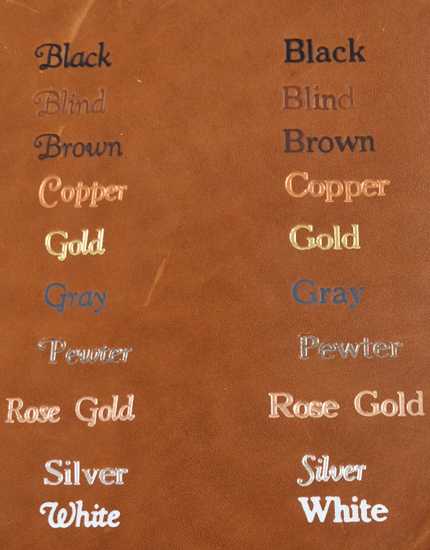 Black Black
Blind Blind
Brown Brown
Copper Copper
Gold Gold
Gray Gray
Pewter Pewter
Rose Gold Rose Gold
Silver Silver
White White